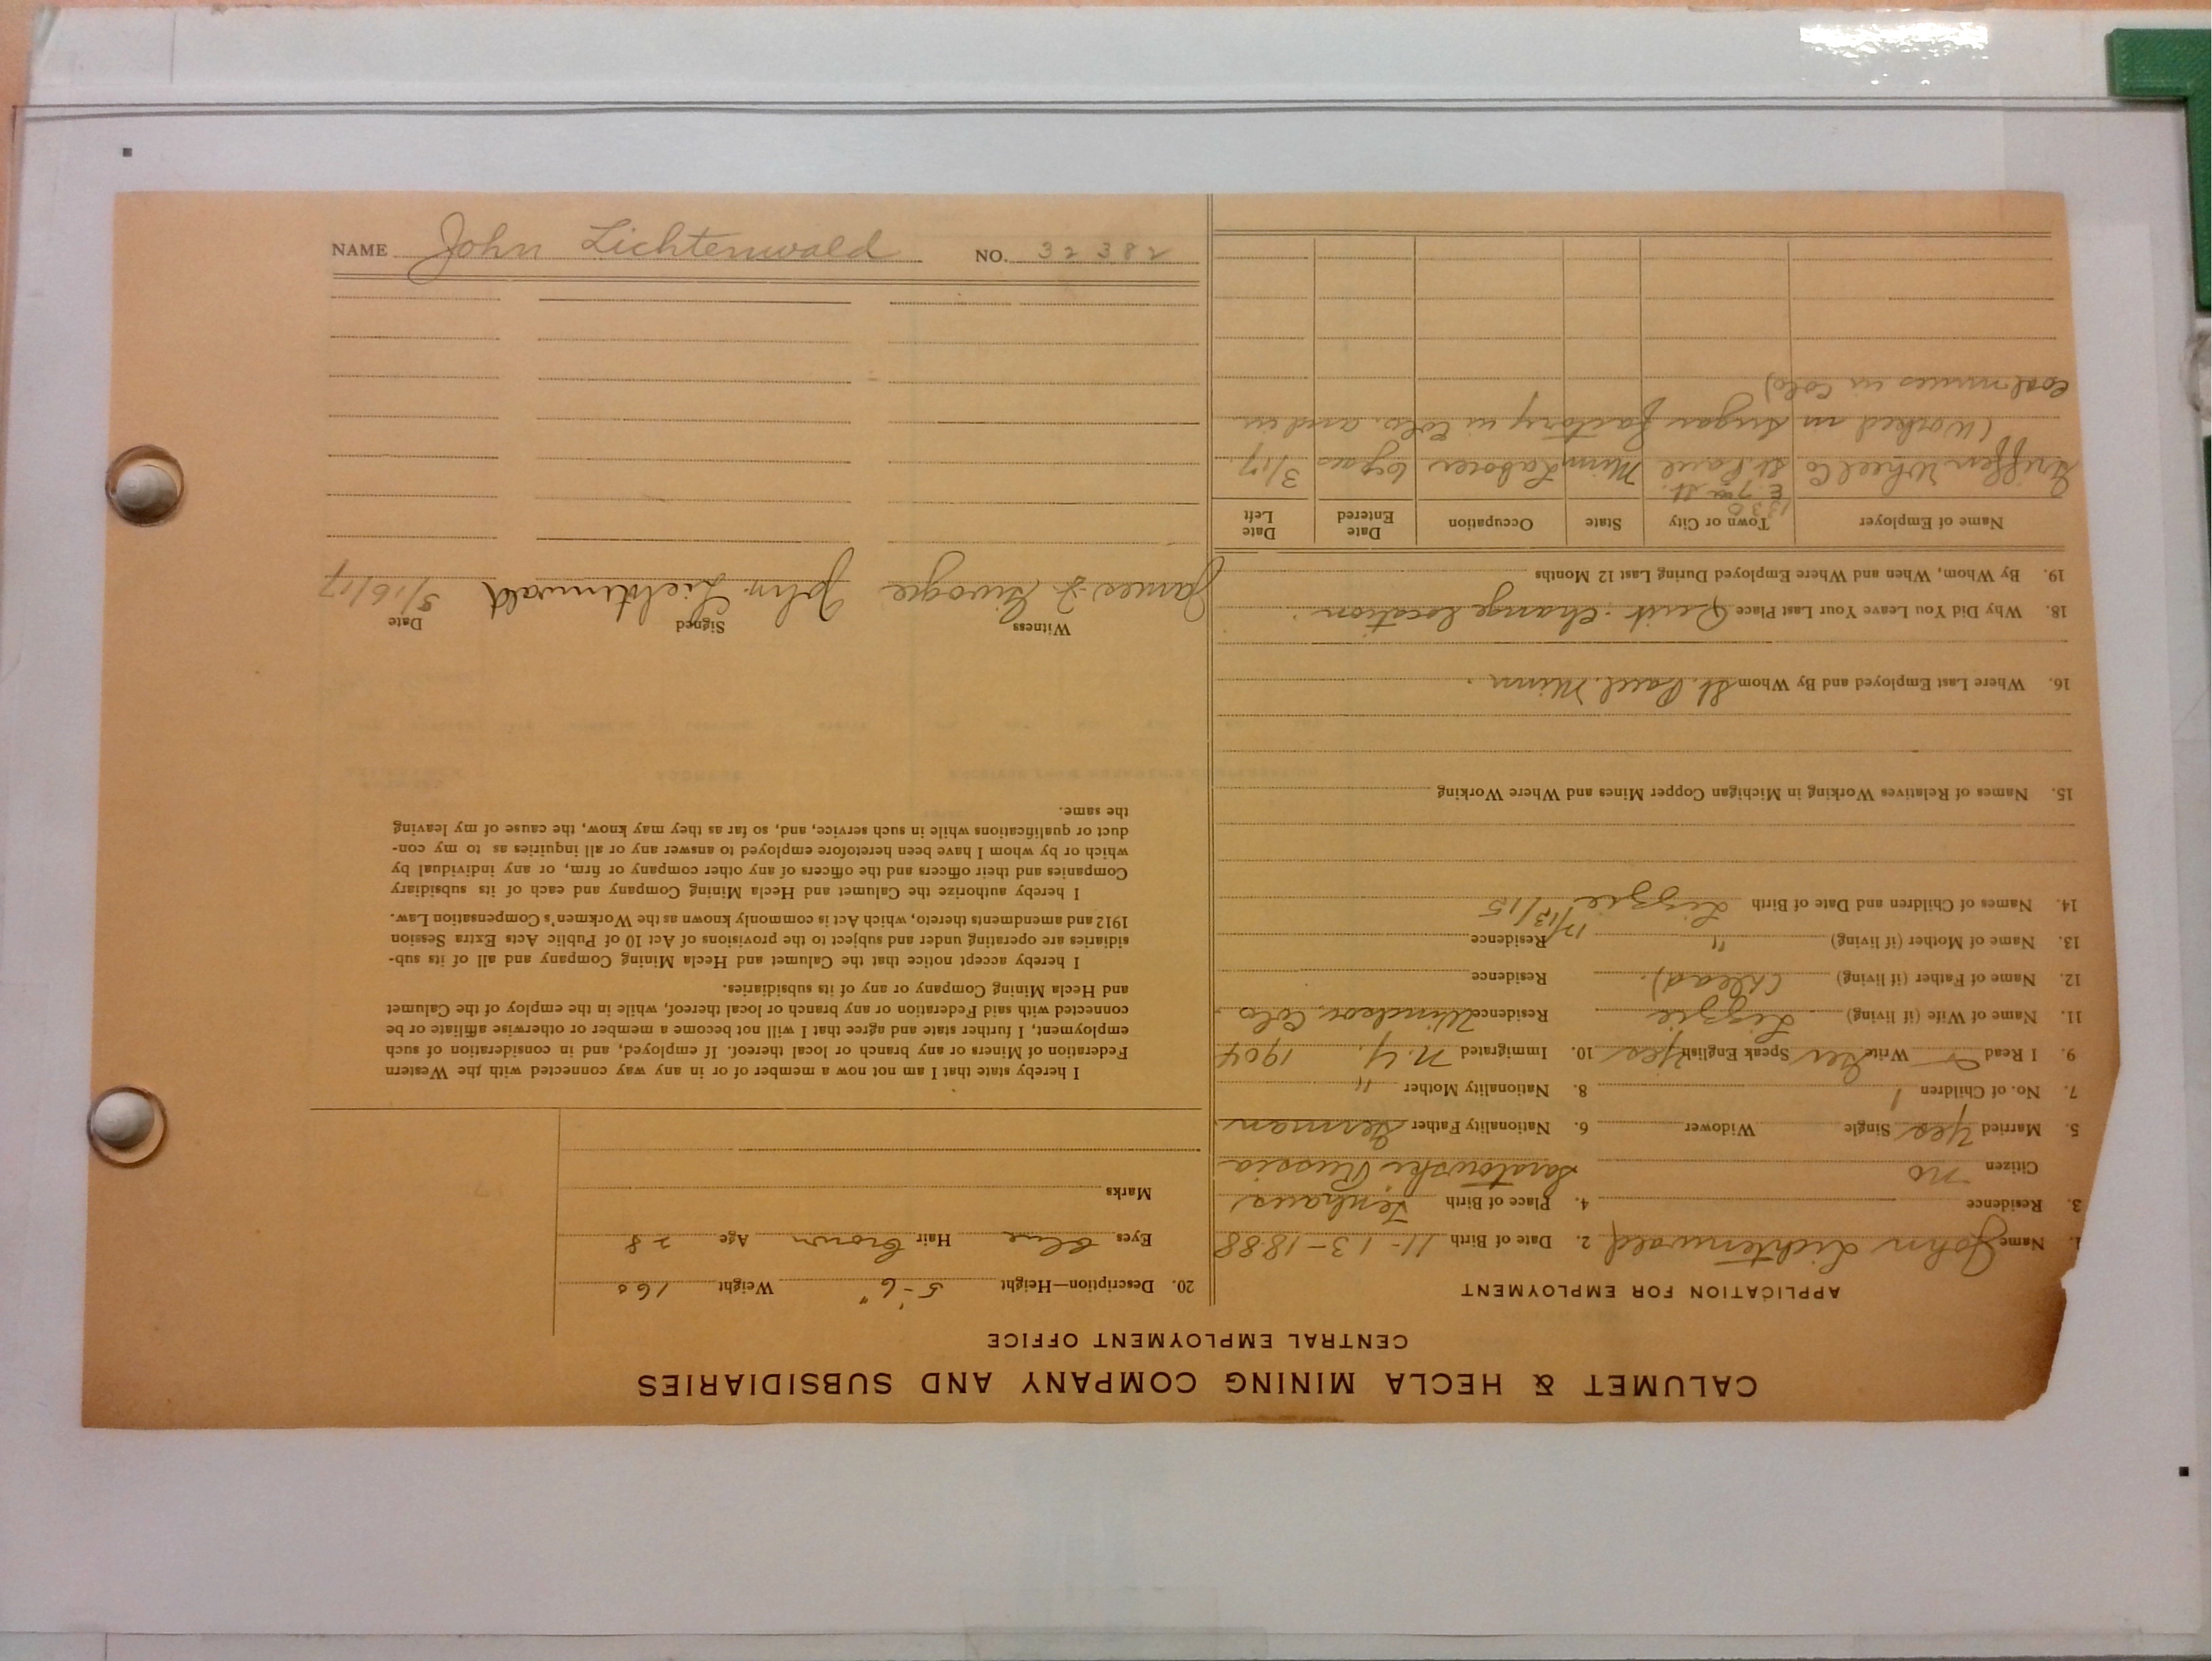 NAME John Lichtenwald NO. 32382
CALUMET & HECLA MINING COMPANY AND SUBSIDIARIES
CENTRAL EMPLOYMENT OFFICE
APPLICATION FOR EMPLOYMENT
1. Name John Lichtenwald 2. Date of Birth 11-13-1888
3. Residence 4. Place of Birth
Citizen no Saratowski Russia
5. Married Yes Single Widower 6. Nationality Father German
7. No. of Children 1 8. Nationality Mother "
9. I Read Write Ger Speak English yes 10. Immigrated N.Y. 1904
11. Name of Wife (if living) Lizzie Residence Windsor Colo
12. Name of Father (if living) (dead) Residence
13. Name of Mother (if living) " Residence
14. Names of Children and Date of Birth Lizzie 12/13/15
15. Names of Relatives Working in Michigan Copper Mines and Where Working
16. Where Last Employed and By Whom St. Paul. Minn.
18. Why Did You Leave Your Last Place Quit. Change location.
19. By Whom, When and Where Employed During Last 12 Months
Name of Employer Town or City State Occupation Date Entered Date Left
1330
E. 7th St.
Griffen Wheel Co St. Paul Minn Laborer 3/17
(Worked in Sugar factory in Colo. and in
coal mines in Colo)
20. Description—Height 5-6" Weight 160
Eyes blue Hair brown Age 28
Marks
I hereby state that I am not now a member of or in any way connected with the Western
Federation of Miners or any branch or local thereof. If employed, and in consideration of such
employment, I further state and agree that I will not become a member or otherwise affiliate or be
connected with said Federation or any branch or local thereof, while in the employ of the Calumet
and Hecla Mining Company or any of its subsidiaries.
I hereby accept notice that the Calumet and Hecla Mining Company and all of its sub-
sidiaries are operating under and subject to the provisions of Act 10 of Public Acts Extra Session
1912 and amendments thereto, which Act is commonly known as the Workmen's Compensation Law.
I hereby authorize the Calumet and Hecla Mining Company and each of its subsidiary
Companies and their officers and the officers of any other company or firm, or any individual by
which or by whom I have been heretofore employed to answer any or all inquiries as to my con-
duct or qualifications while in such service, and, so far as they may know, the cause of my leaving
the same.
Witness Signed Date
James John Lichtenwald 3/16/17